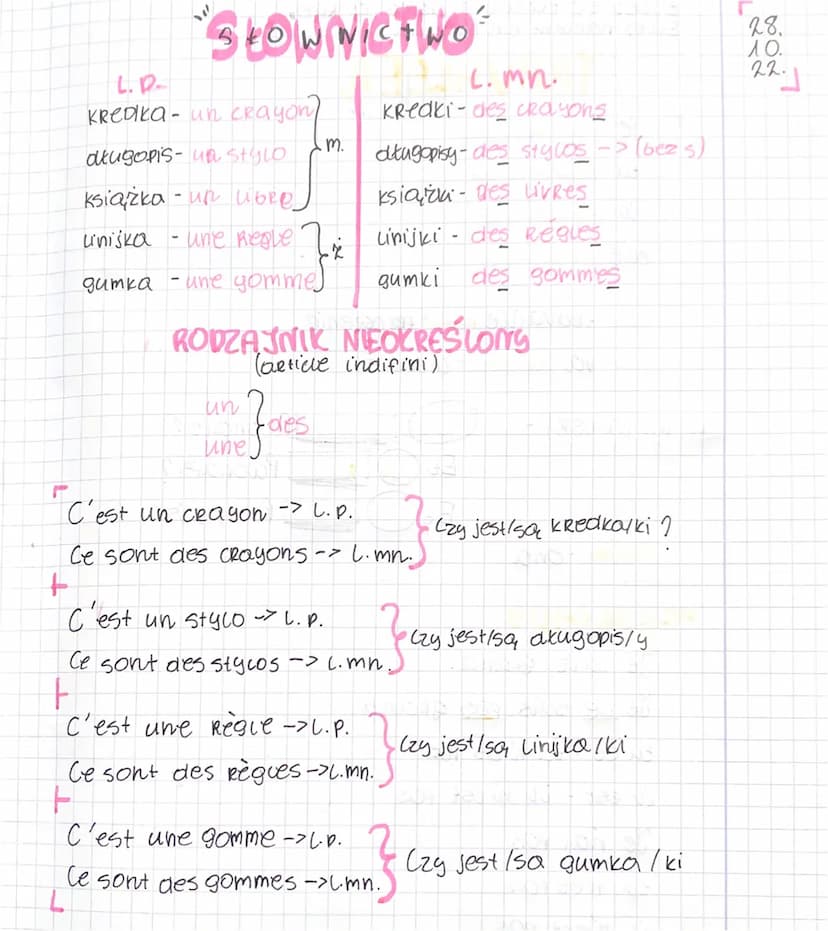 SŁOWNICTWO
28.
10.
22.
L.P. L.mn.
kredka - un crayon kredki - des crayons
długopis - un stylo m. długopisy - des stylos -> (bez s)
książka - un livre książki - des livres
linijka - une règle linijki - des règles
ż
gumka - une gomme gumki des gommes
RODZAJNIK NIEOKREŚLONY
(article indifini)
un
des
une
C'est un crayon -> L.P.
Czy jest/są kredka/ki?
Ce sont des crayons -> L.mn.
C'est un stylo -> L.P.
Czy jest/są długopis/y
Ce sont des stylos -> L.mn.
C'est une règle -> L.P.
Czy jest/są linijka/ki
Ce sont des règles -> L.mn.
C'est une gomme -> L.P.
Czy jest/sa gumka/ki
Ce sont des gommes -> L.mn.